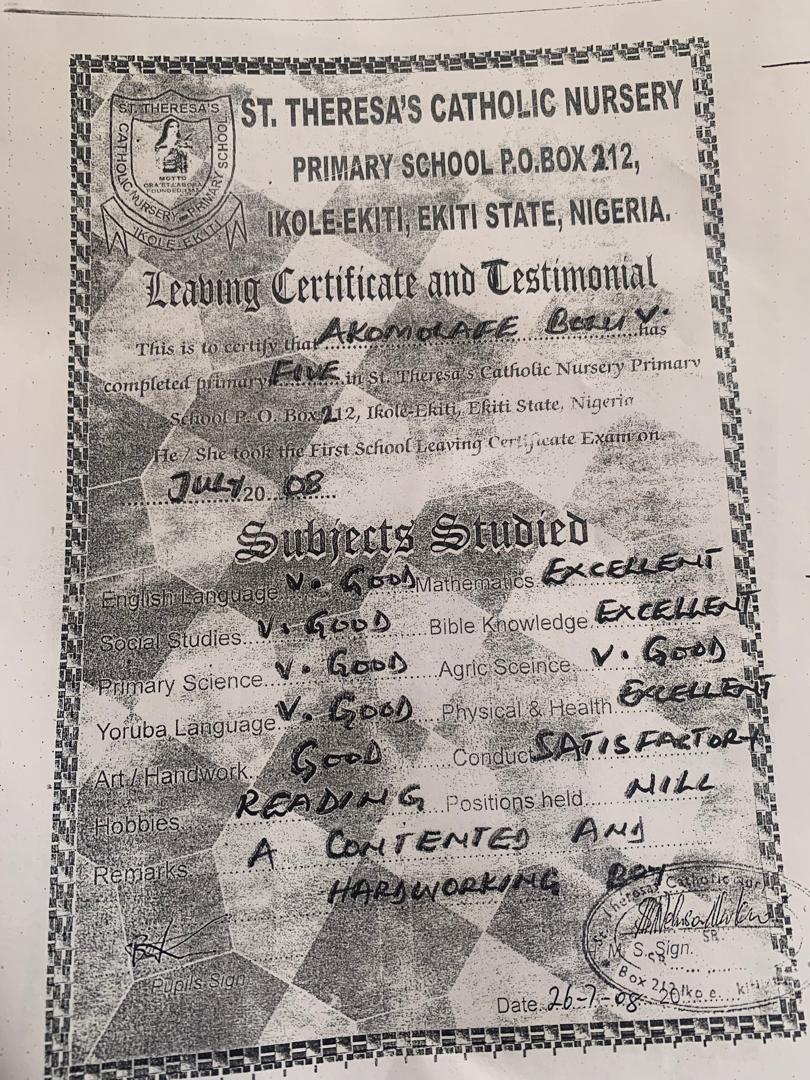 ST. THERESA'S
CATHOLIC NURSERY - PRIMARY SCHOOL
MOTTO
ORA ET LABORA
FOUNDED
IKOLE-EKITI
ST. THERESA'S CATHOLIC NURSERY
PRIMARY SCHOOL P.O.BOX 212,
IKOLE-EKITI, EKITI STATE, NIGERIA.
Leaving Certificate and Testimonial
This is to certify that AKOMOLAFE V. has
completed primary FIVE in St. Theresa's Catholic Nursery Primary
School P. O. Box 212, Ikole-Ekiti, Ekiti State, Nigeria
He / She took the First School Leaving Certificate Exam on
JULY 20 08
Subjects Studied
English Language V. GOOD Mathematics EXCELLENT
Social Studies V. GOOD Bible Knowledge EXCELLENT
Primary Science V. GOOD Agric Sceince V. GOOD
Yoruba Language V. GOOD Physical & Health EXCELLENT
Art / Handwork GOOD Conduct SATISFACTORY
Hobbies READING Positions held NILL
Remarks A CONTENTED AND
HARDWORKING BOY
Pupils Sign
St. Theresa's Catholic
SR
M S. Sign.
Box 212 Iko e
Date 26-7-08 20